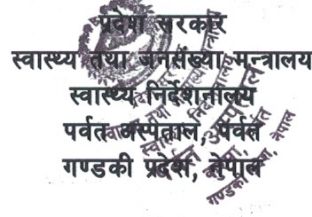 प्रदेश सरकार
स्वास्थ्य तथा जनसंख्या मन्त्रालय
स्वास्थ्य निर्देशनालय
पर्वत अस्पताल, पर्वत
गण्डकी प्रदेश, नेपाल